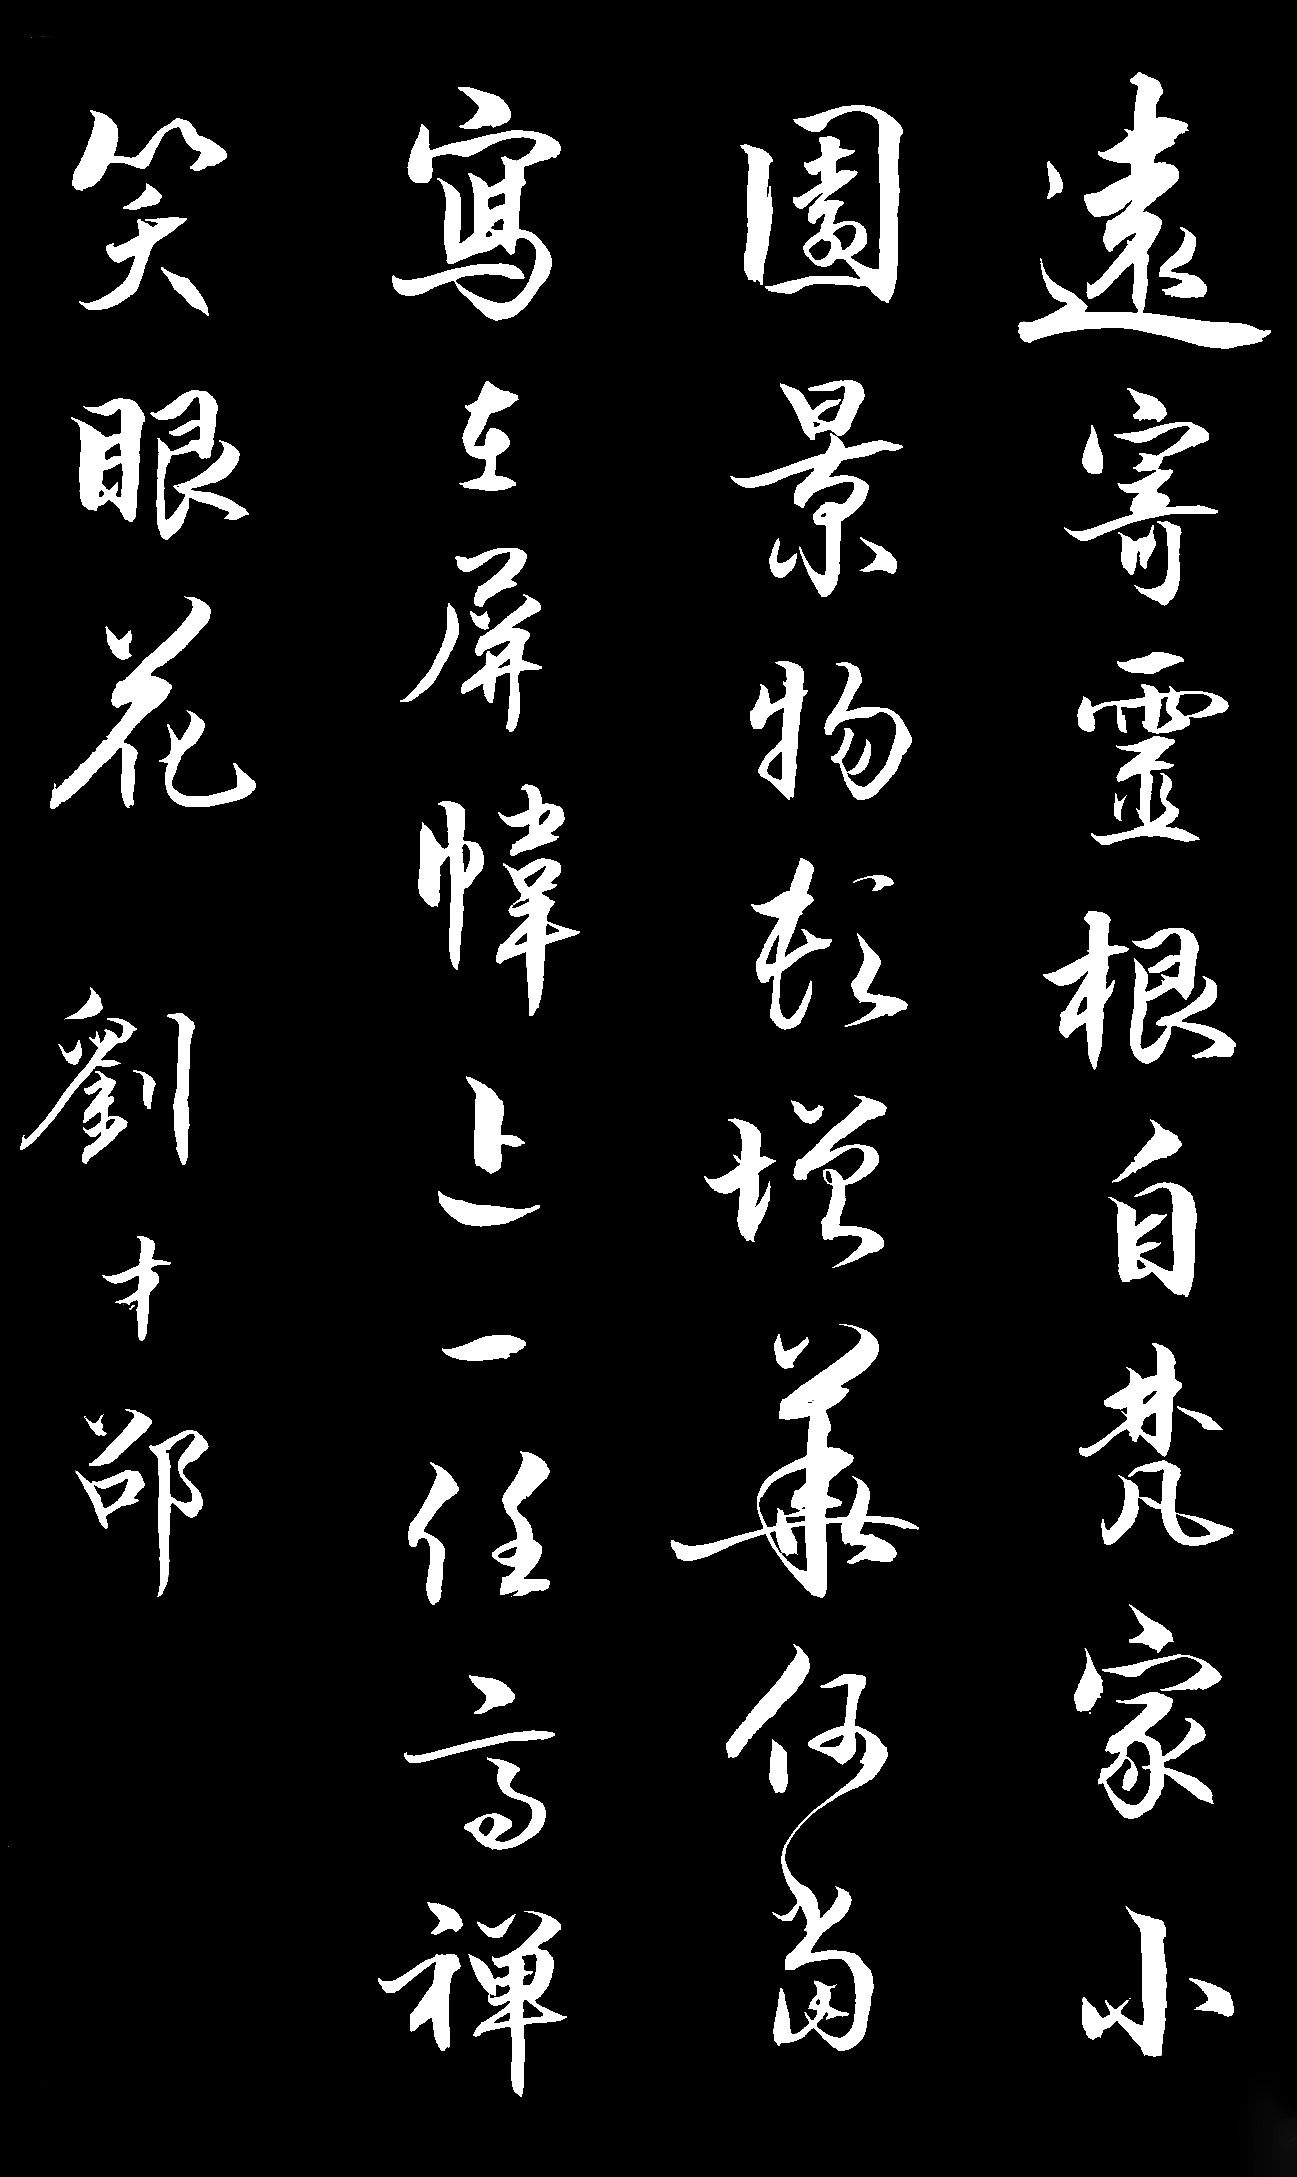 遠寄靈根自梵家小
園景物頓增華何當
寫在屏幃上一任高禪
笑眼花 劉才邵